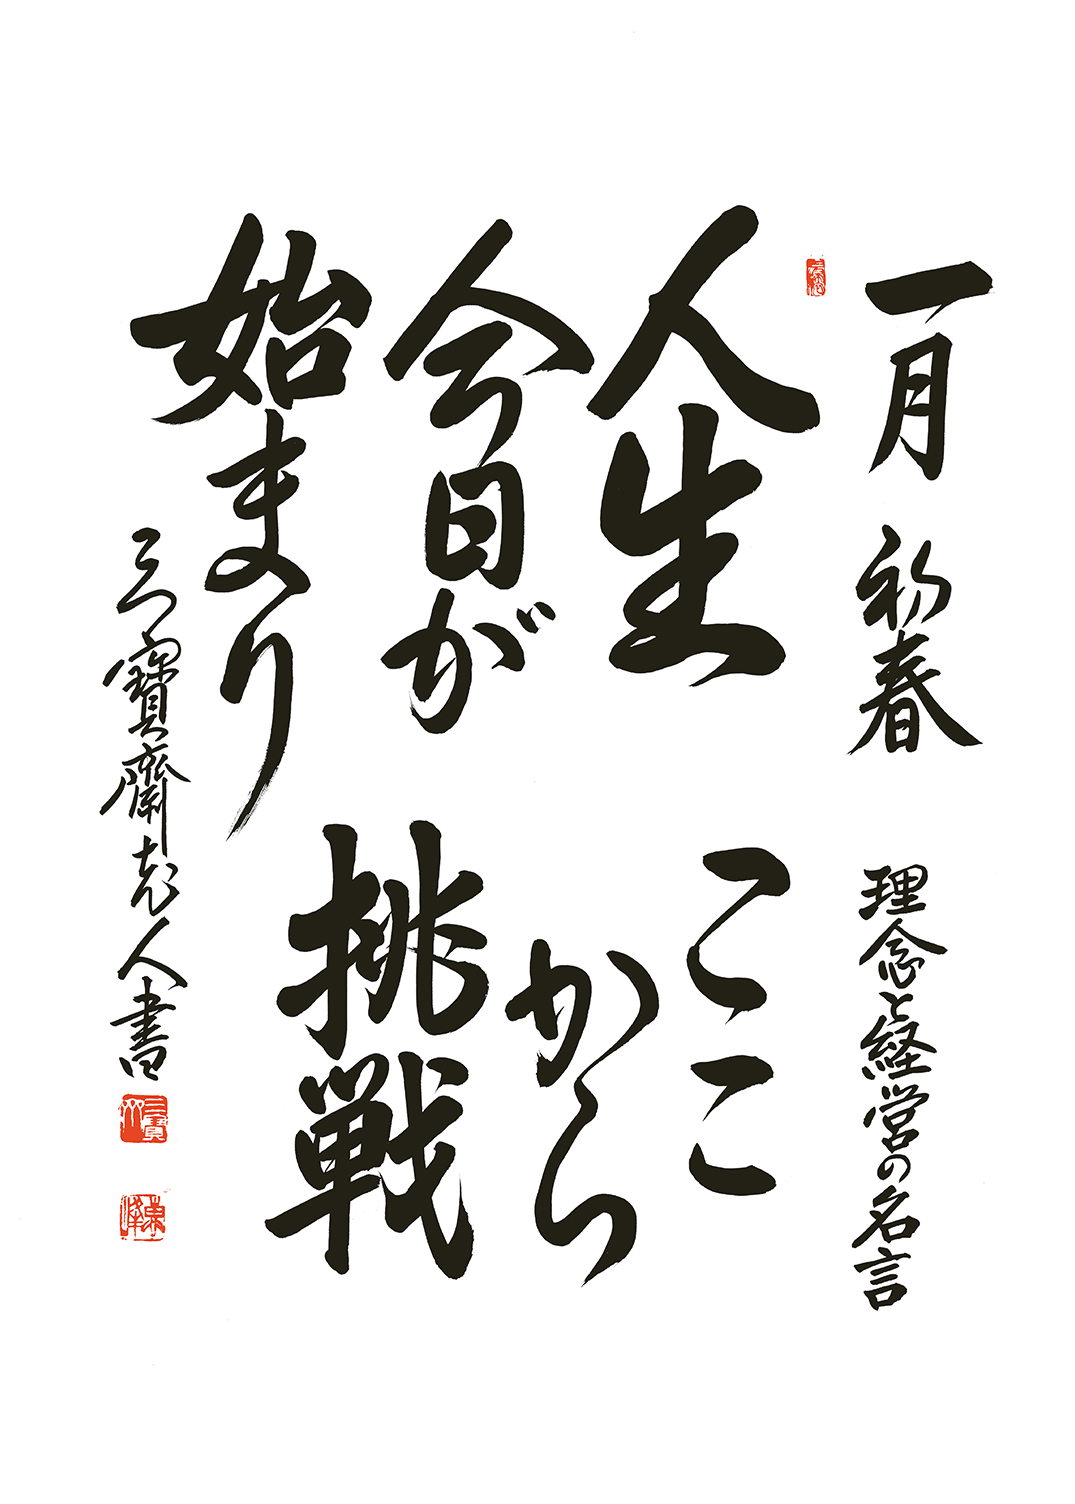 一月 初春 理念と経営の名言
人生
今日が
始まり
ここ
から
挑戦
三寳齋老人書
三寳